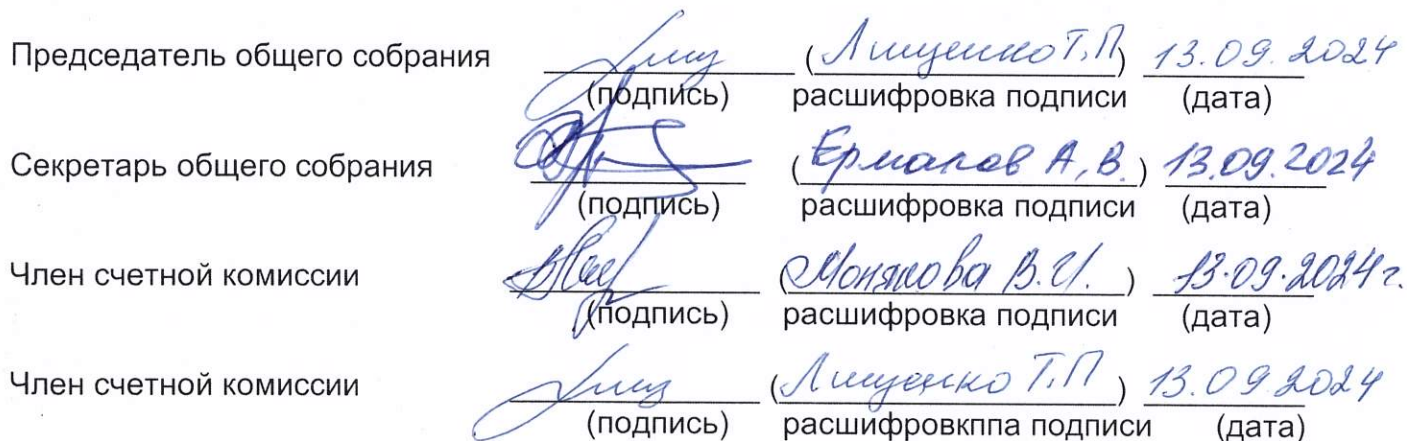 Председатель общего собрания (Лищенко Т.П) 13.09.2024
(подпись) расшифровка подписи (дата)
Секретарь общего собрания (Ермаков А.В.) 13.09.2024
(подпись) расшифровка подписи (дата)
Член счетной комиссии ( В.И. ) 13.09.2024г.
(подпись) расшифровка подписи (дата)
Член счетной комиссии (Лищенко Т.П ) 13.09.2024
(подпись) расшифровкппа подписи (дата)